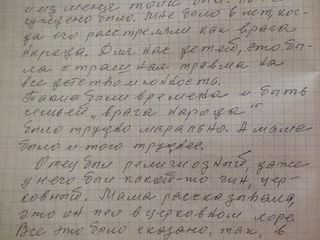 и из меня тыка были. по
суждено было. Мне было 6 лет, ког-
да его расстреляли как врага
народа. Для нас детей, это бы-
ла страшная травма на
все детство и юность.
Такие были времена и быть
семьей „врага народа"
было трудно марально. А маме
было и того труднее.
Отец был религиозный, даже
у него был какой-то чин, цер-
ковный. Мама рассказывала,
что он пел в церковном хоре
Все это было сказано, так, в